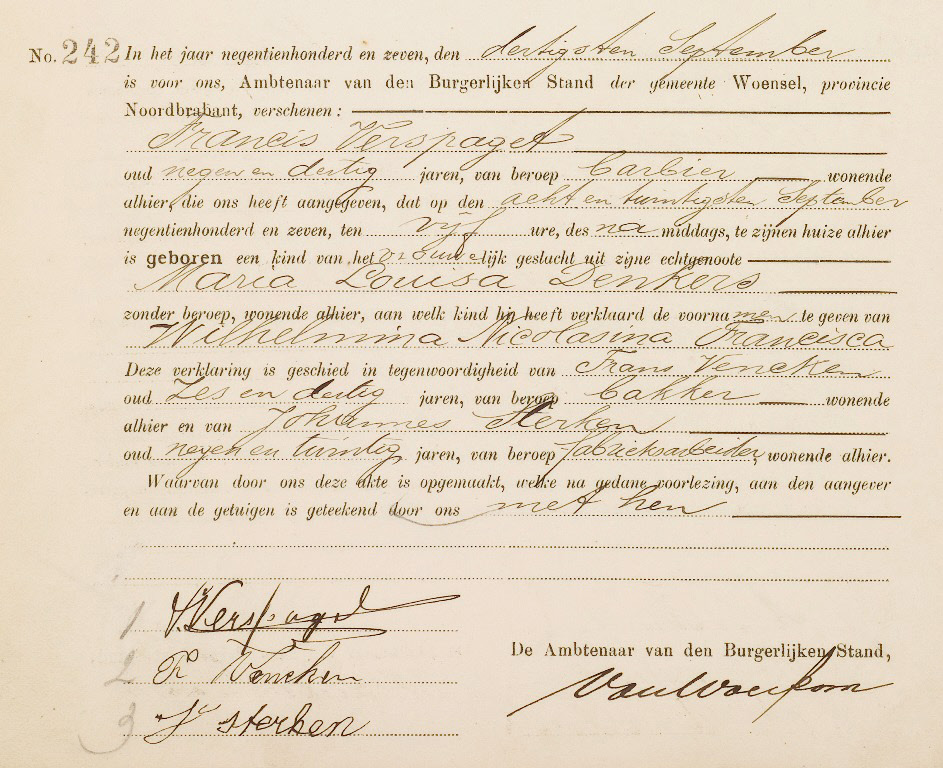 No. 242 In het jaar negentienhonderd en zeven, den dertigsten September
is voor ons, Ambtenaar van den Burgerlijken Stand der gemeente Woensel, provincie
Noordbrabant, verschenen:
Francis Verspaget
oud negen en dertig jaren, van beroep barbier wonende
alhier, die ons heeft aangegeven, dat op den acht en twintigsten September
negentienhonderd en zeven, ten vijf ure, des na middags, te zijnen huize alhier
is geboren een kind van het vrouwelijk geslacht uit zijne echtgenoote
Maria Louisa Denkers
zonder beroep, wonende alhier, aan welk kind hij heeft verklaard de voornamen te geven van
Wilhelmina Nicolasina Francisca
Deze verklaring is geschied in tegenwoordigheid van Frans Vencken
oud zes en dertig jaren, van beroep bakker wonende
alhier en van Johannes Sterken
oud negen en twintig jaren, van beroep fabrieksarbeider, wonende alhier.
Waarvan door ons deze akte is opgemaakt, welke na gedane voorlezing, aan den aangever
en aan de getuigen is geteekend door ons met hen
1 Verspaget
2 F Vencken
De Ambtenaar van den Burgerlijken Stand,
3 J Sterken